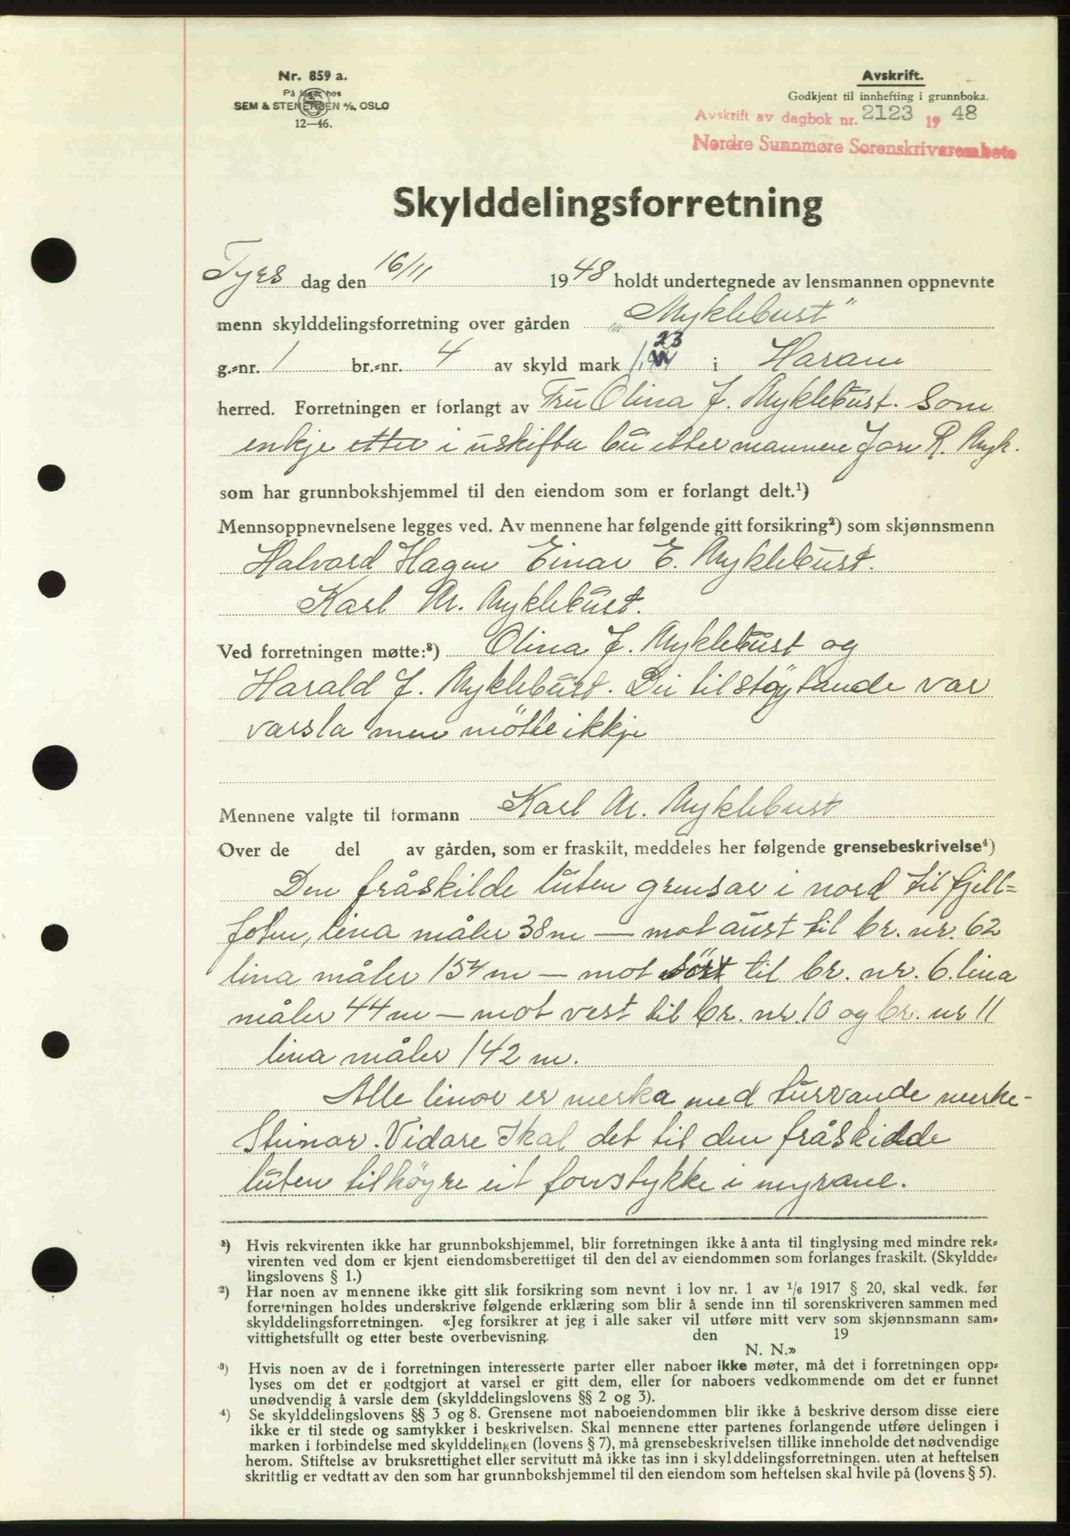 Nr. 859 a.
På lager hos
SEM & STENERSEN A/S, OSLO
12—46.
Avskrift.
Godkjent til innhefting i grunnboka.
Avskrift av dagbok nr. 2123 19 48
Nordre Sunnmøre Sorenskrivarembete
Skylddelingsforretning
Tyrs dag den 16/11 1948 holdt undertegnede av lensmannen oppnevnte
menn skylddelingsforretning over gården „Myklebust"
g.-nr. 1 br.-nr. 4 av skyld mark 1, 23 i Haram
herred. Forretningen er forlangt av Fru Olina J. Myklebust. Som
enkje etter i uskifta bu etter mannen Jon R. Myk.
som har grunnbokshjemmel til den eiendom som er forlangt delt.¹)
Mennsoppnevnelsene legges ved. Av mennene har følgende gitt forsikring²) som skjønnsmenn
Halvard Hagen Einar E. Myklebust.
Karl M. Myklebust.
Ved forretningen møtte:³) Olina J. Myklebust og
Harald J. Myklebust. Dei tilstøytande var
varsla men møtte ikkje
Mennene valgte til formann Karl M. Myklebust
Over de del av gården, som er fraskilt, meddeles her følgende grensebeskrivelse⁴)
Den fråskilde luten grensar i nord til fjell=
foten, lina måler 38 m — mot aust til br. nr. 62
lina måler 154 m — mot sört til br. nr. 6. lina
måler 44 m — mot vest til br. nr. 10 og br. nr 11
lina måler 142 m.
Alle linor er merka med turvande merke-
Steinar. Vidare Skal det til den fråskilde
luten tilhöyre eit forstykke i myrane.
¹) Hvis rekvirenten ikke har grunnbokshjemmel, blir forretningen ikke å anta til tinglysing med mindre rek-
virenten ved dom er kjent eiendomsberettiget til den del av eiendommen som forlanges fraskilt. (Skyldde-
lingslovens § 1.)
²) Har noen av mennene ikke gitt slik forsikring som nevnt i lov nr. 1 av 1/6 1917 § 20, skal vedk. før
forretningen holdes underskrive følgende erklæring som blir å sende inn til sorenskriveren sammen med
skylddelingsforretningen. «Jeg forsikrer at jeg i alle saker vil utføre mitt verv som skjønnsmann sam-
vittighetsfullt og etter beste overbevisning. den 19
N. N.»
³) Hvis noen av de i forretningen interesserte parter eller naboer ikke møter, må det i forretningen opp-
lyses om det er godtgjort at varsel er gitt dem, eller for naboers vedkommende om det er funnet
unødvendig å varsle dem (skylddelingslovens §§ 2 og 3).
⁴) Se skylddelingslovens §§ 3 og 8. Grensene mot naboeiendommen blir ikke å beskrive dersom disse eiere
ikke er til stede og samtykker i beskrivelsen. Skal mennene etter partenes forlangende utføre delingen i
marken i forbindelse med skylddelingen (lovens § 7), må grensebeskrivelsen tillike inneholde det nødvendige
herom. Stiftelse av bruksrettighet eller servitutt må ikke tas inn i skylddelingsforretningen. uten at heftelsen
skriftlig er vedtatt av den som har grunnbokshjemmel til den eiendom som heftelsen skal hvile på (lovens § 5).